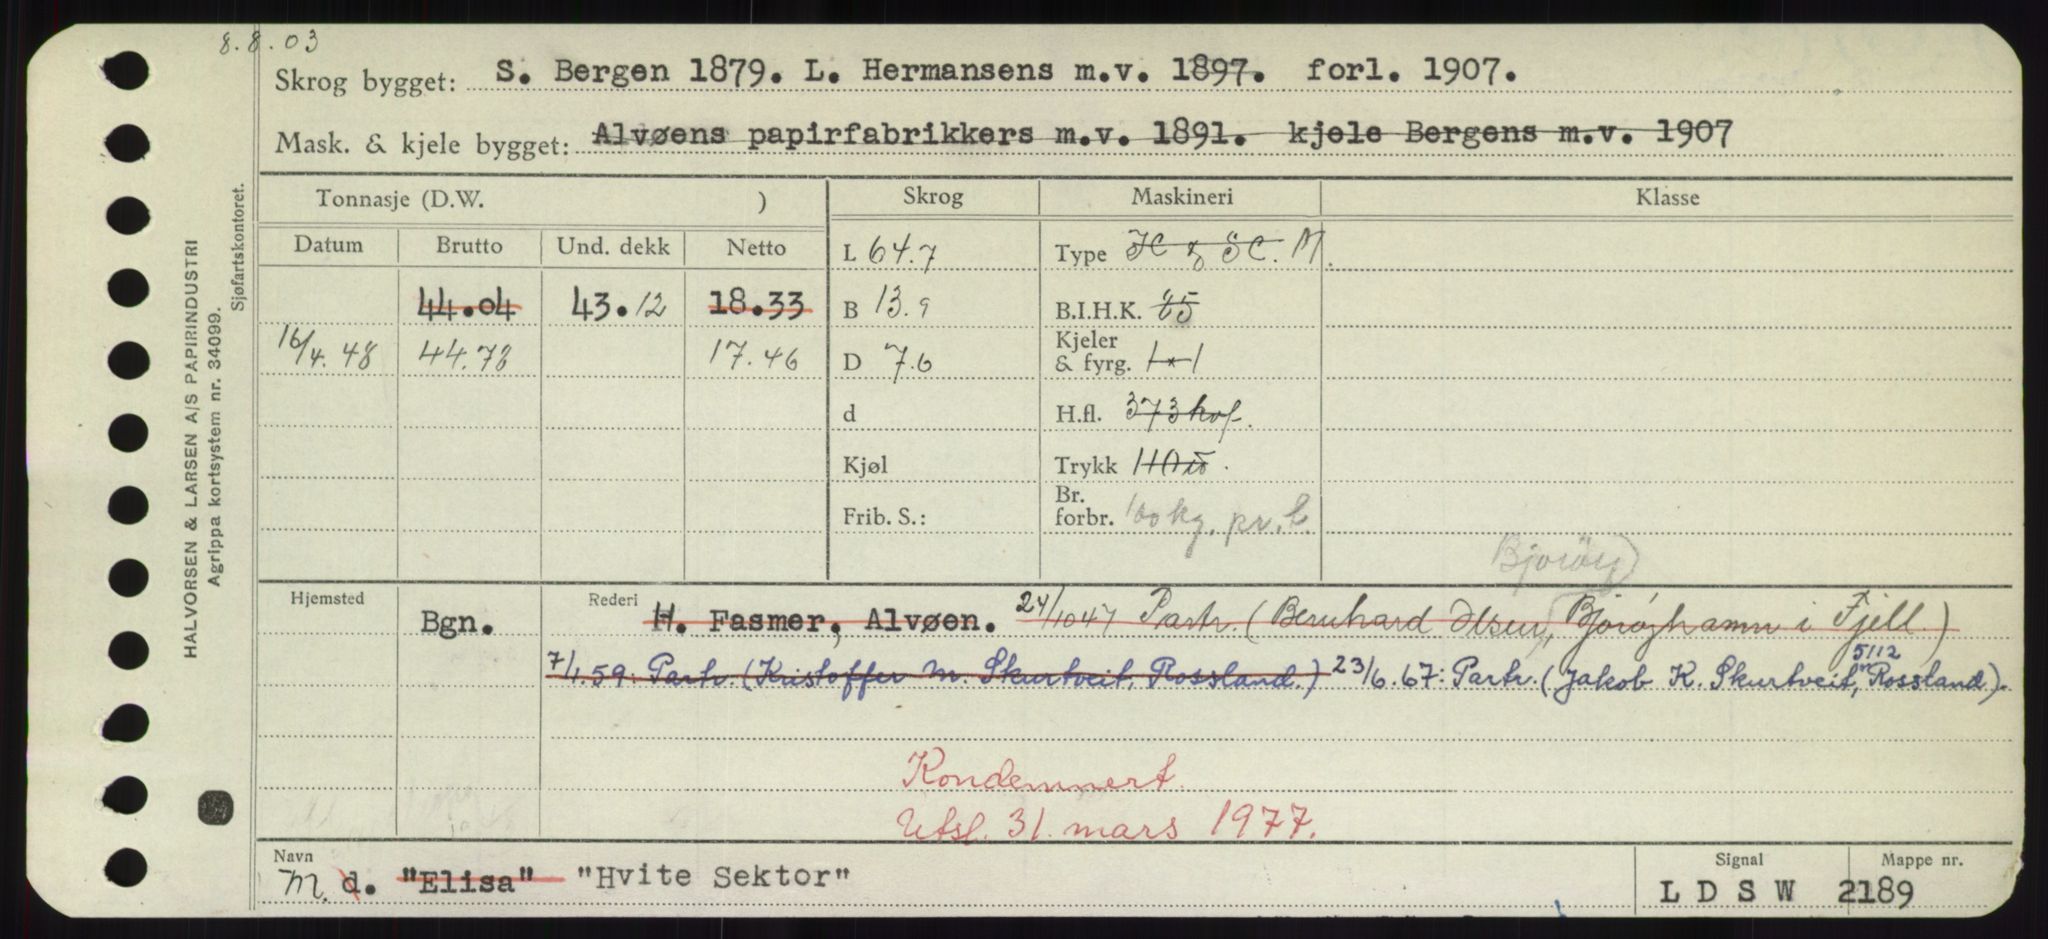 8.8.03
Skrog bygget: S. Bergen 1879. L. Hermansens m.v. 1897. forl. 1907.
Mask. & kjele bygget: Alvøens papirfabrikkers m.v. 1891. kjele Bergens m.v. 1907
Tonnasje (D.W. ) Skrog Maskineri Klasse
Datum Brutto Und. dekk Netto
L 64.7 Type
44.04 43.12 18.33 B 13.9 B.I.H.K. 85
16/4.48 44.78 17.46 D 7.6 Kjeler & fyrg. 1-1
d H.fl. 373 kvf.
Kjøl Trykk 110
Frib. S.: Br. forbr. 100 kg. pr. t.
Bjorøy
Hjemsted Rederi
Bgn. H. Fasmer, Alvøen. 24/10 47 Partr. (Bernhard Olsen, Bjorøyhamn i Fjell.)
7/1.59: Partr. (Kristoffer M. Skurtveit, Rossland.) 23/6.67: Partr. (Jakob K. Skurtveit, 5112 Rossland).
Kondemnert.
Utsl. 31. mars 1977.
Navn Signal Mappe nr.
M d. "Elisa" "Hvite Sektor" L D S W 2189
HALVORSEN & LARSEN A/S PAPIRINDUSTRI
Agrippa kortsystem nr. 34099.
Sjøfartskontoret.